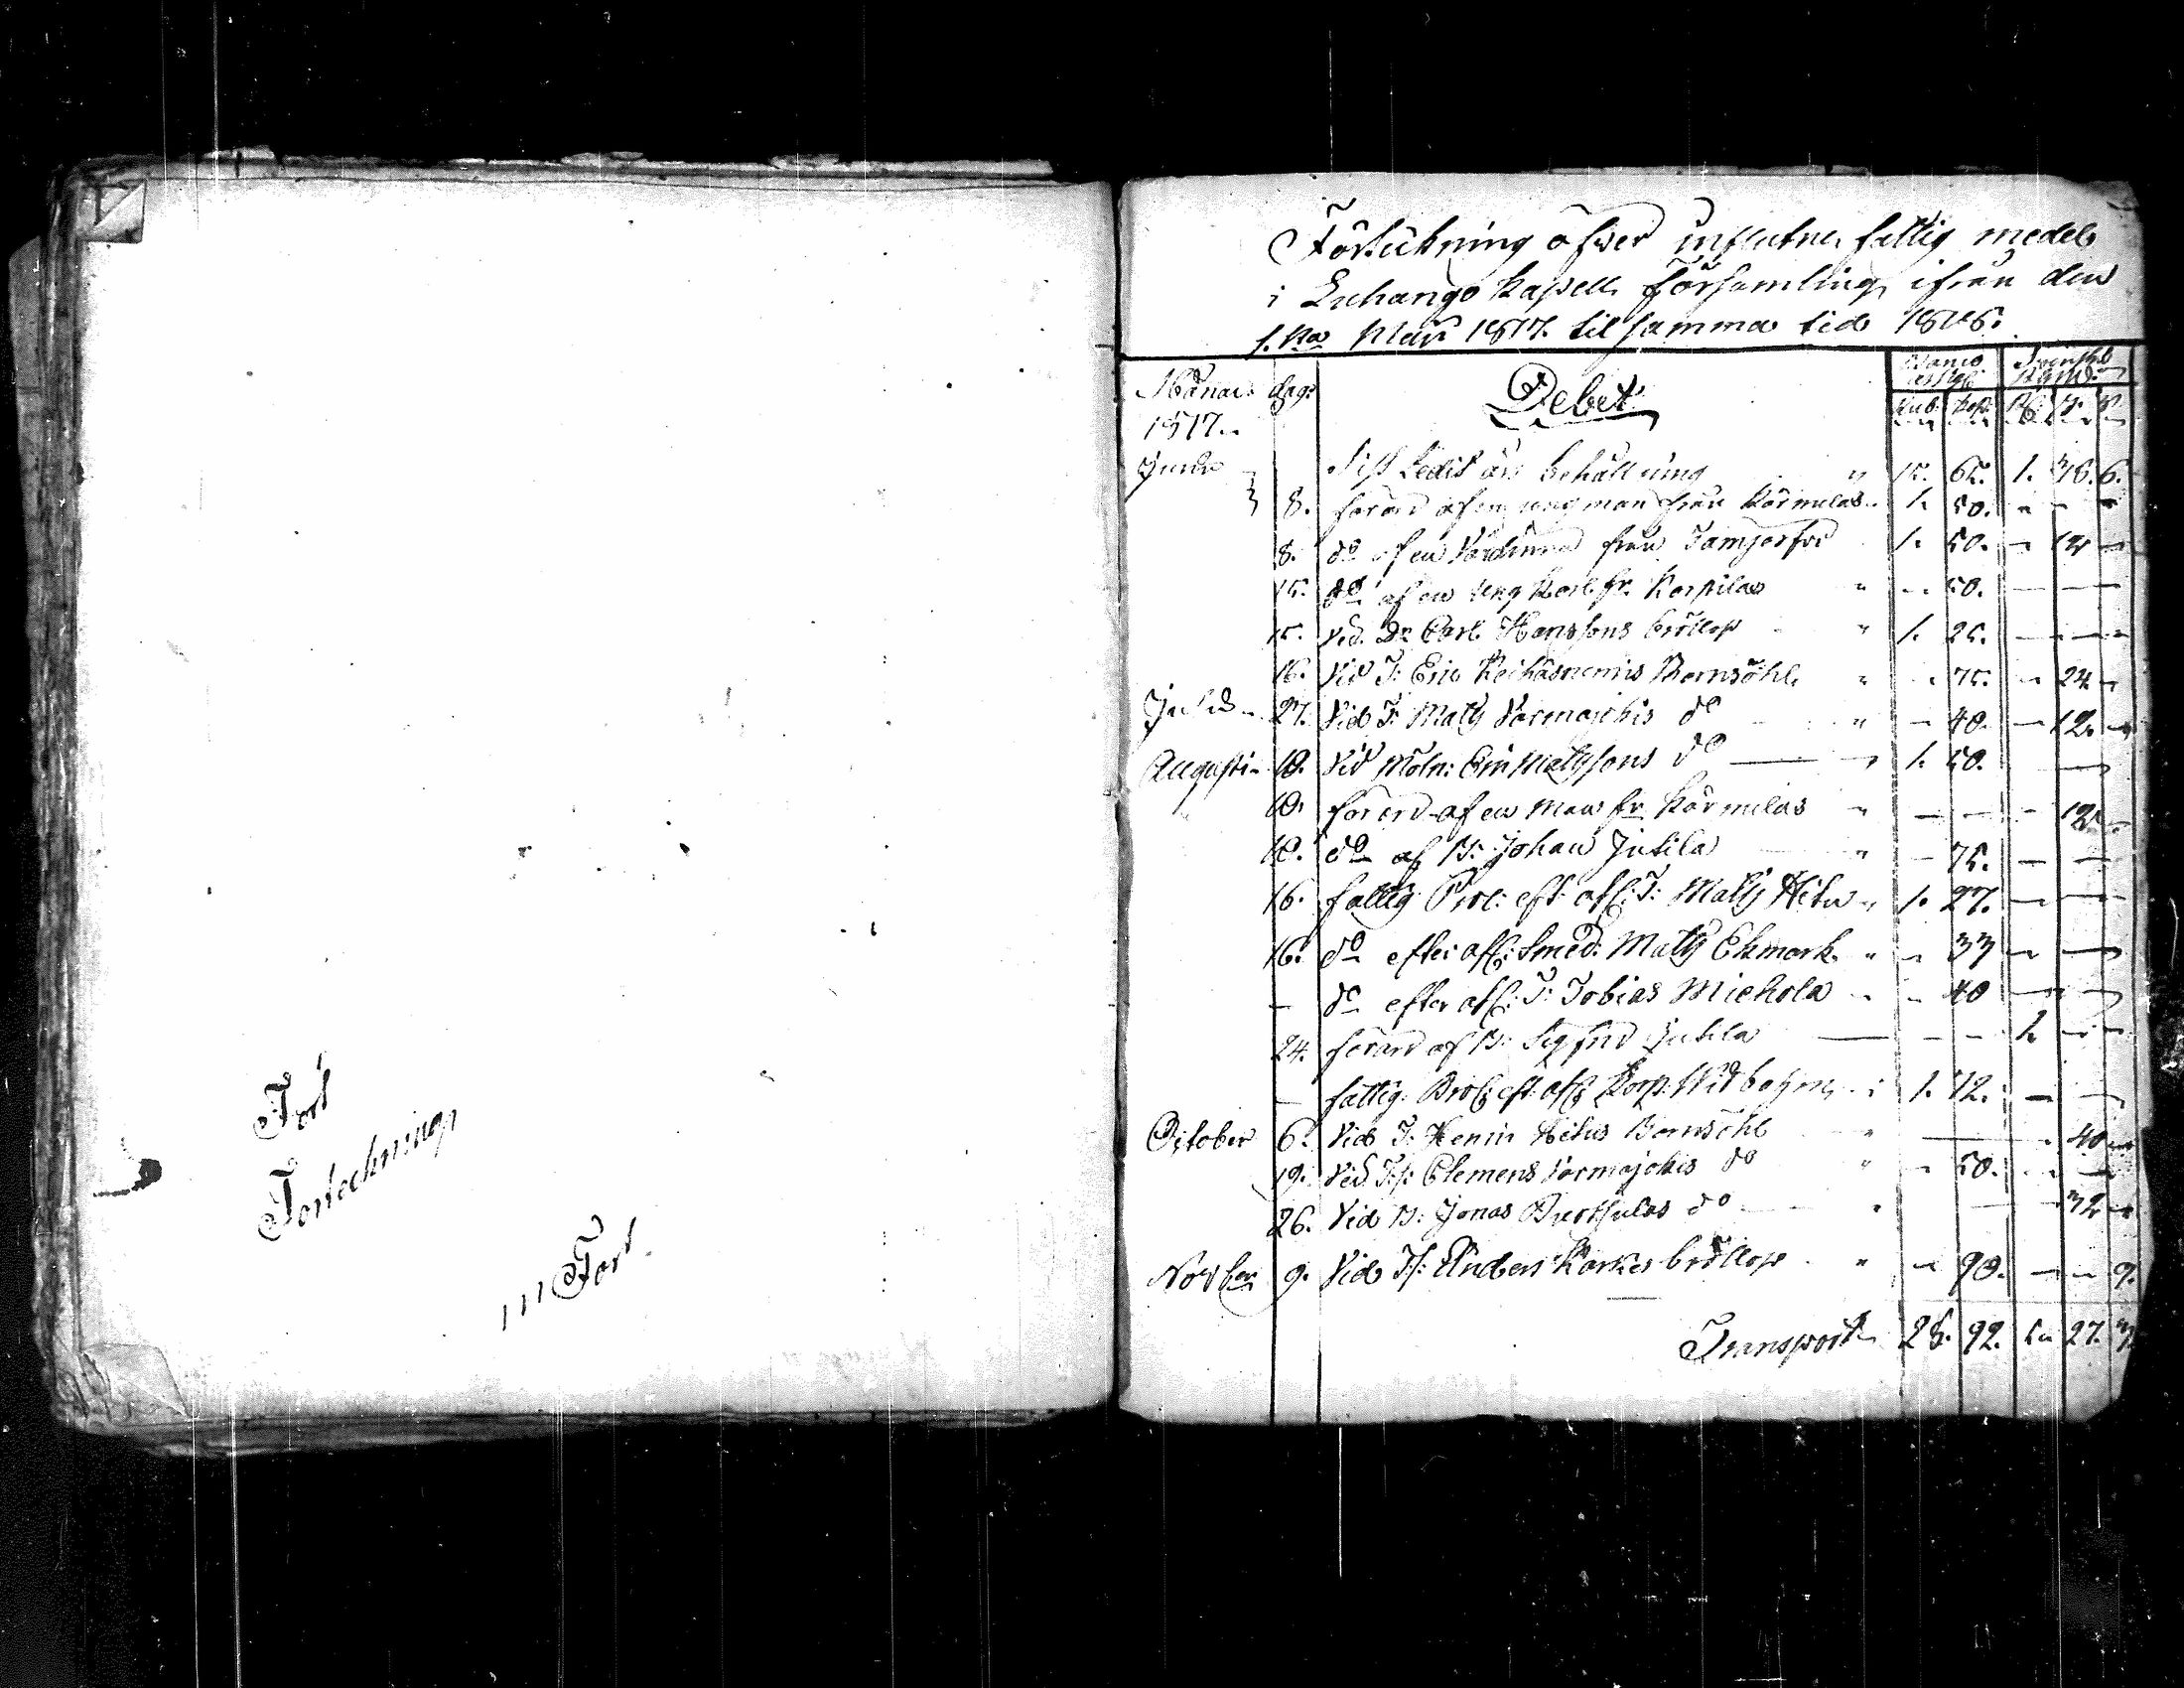 Fört
Förtechning
111 Fort
Förtückning öfver influtne fattig medel
i Euhango kapell församling ifrån den
1:sta Maii 1817. til samma tid 1818.
Månar dag: Debet Banco assign: Svenskt Rgmt:
1817. Rub: kop: Rd ß. r.
Junii Sist ledit års behållning " 15. 65. 1. 38. 6.
8. förärd af en ung man från Kärmulas 1. 50. - - -
8. do af en Värdinna från Tamjerfvi 1. 50. - 12 -
15. do af en ung Karl fr. Korpilax " - 50. - - -
15. Vid Dr. Carl Hanssons bröllop " 1. 25. - - -
16. Vid T: Eric Keihäsniemis Barnsöhl " - 75. - 24 -
Julii - 27. Vid T: Matts Varmajokis do " - 40. - 12. -
Augusti - 10. Vid Möln: Eric Matssons do — 1. 50. —
10. förärd af en man fr. Kärmulas " - - - 12 -
10. do af B: Johan Jutila " - 75. - -
16. fattig Proc: eft: afl: T: Matts Hitu " 1. 27. - -
16. do efter afl: Smed: Matts Ekmark " - 33 - -
- do efter afl: T: Tobias Miehola - - 40 - -
24. förärd af B: Sigfrid Jutila — - - 1. - -
- fattig: Proc: eft: afl: Korp: Widbohm 1. 12. - -
October 6. Vid T: Henric Hitus Barnsöhl " — - 40 -
19. Vid T:p: Clemens Varmajokis do " - 50. - -
26. Vid B: Jonas Perttulas do " - - 32 -
Novber 9. Vid T:p: Anders Karkes bröllop " - 90. - - 9.
Transport 28. 92. 5 27. 3